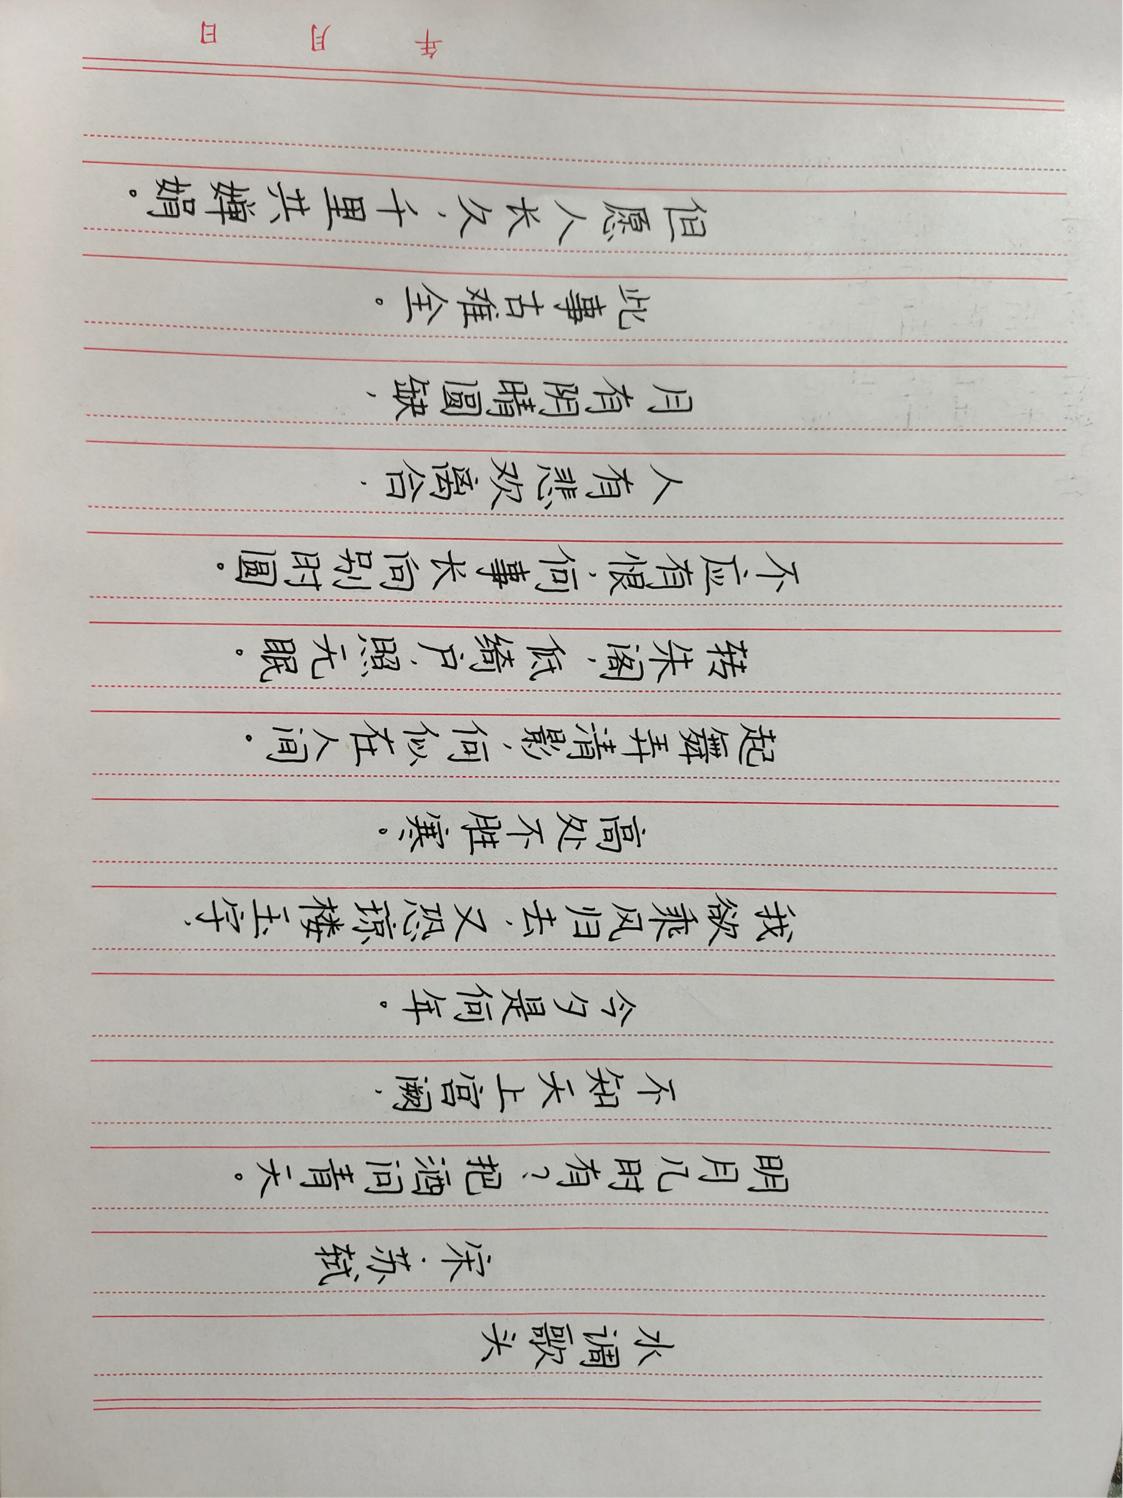 水调歌头
宋·苏轼
明月几时有？把酒问青天。
不知天上宫阙，
今夕是何年。
我欲乘风归去，又恐琼楼玉宇，
高处不胜寒。
起舞弄清影，何似在人间。
转朱阁，低绮户，照无眠。
不应有恨，何事长向别时圆。
人有悲欢离合，
月有阴晴圆缺，
此事古难全。
但愿人长久，千里共婵娟。
年 月 日